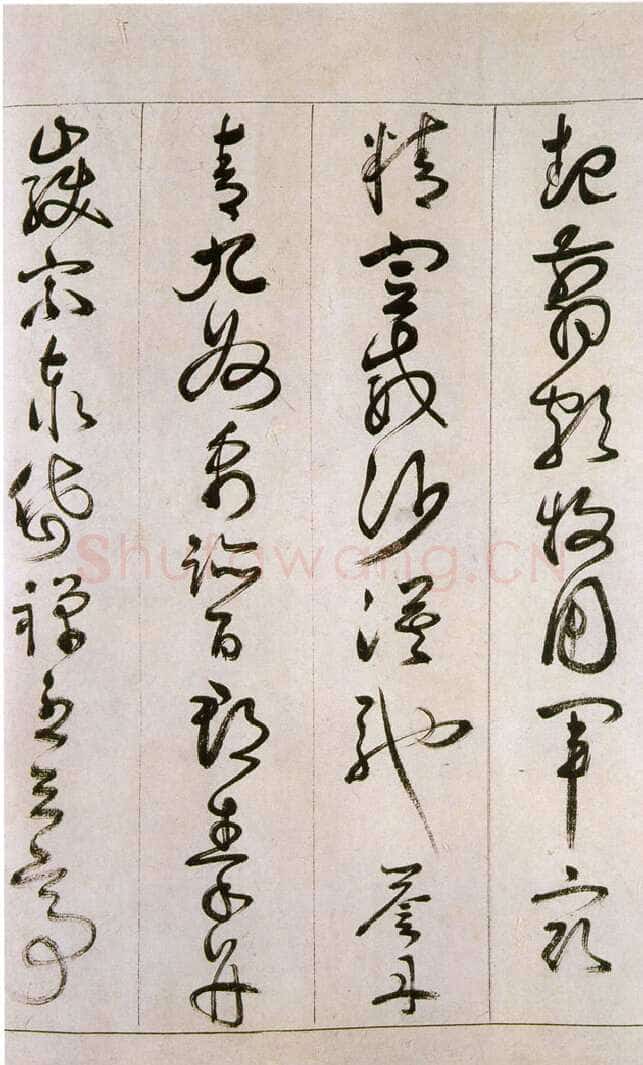 起翦頗牧用軍最
精宣威沙漠馳譽丹
青九州禹跡百郡秦并
嶽宗泰岱禪主云亭
Shufawang.CN